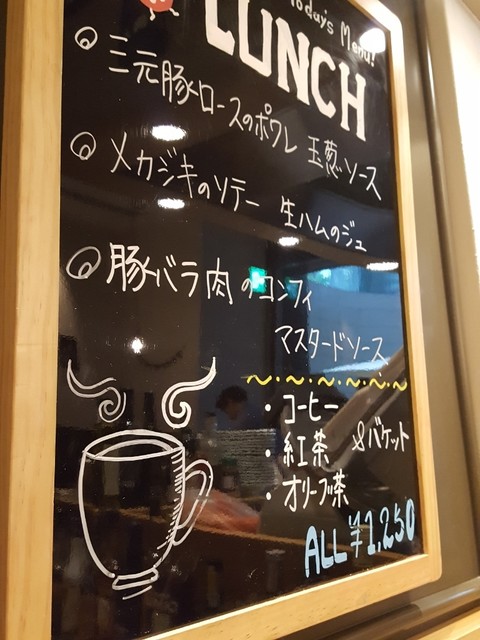 Today's Menu!
LUNCH
三元豚ロースのポワレ 玉葱ソース
メカジキのソテー 生ハムのジュ
豚バラ肉のコンフィ
マスタードソース
・コーヒー
・紅茶 &バケット
・オリーブ茶
ALL ¥1,250